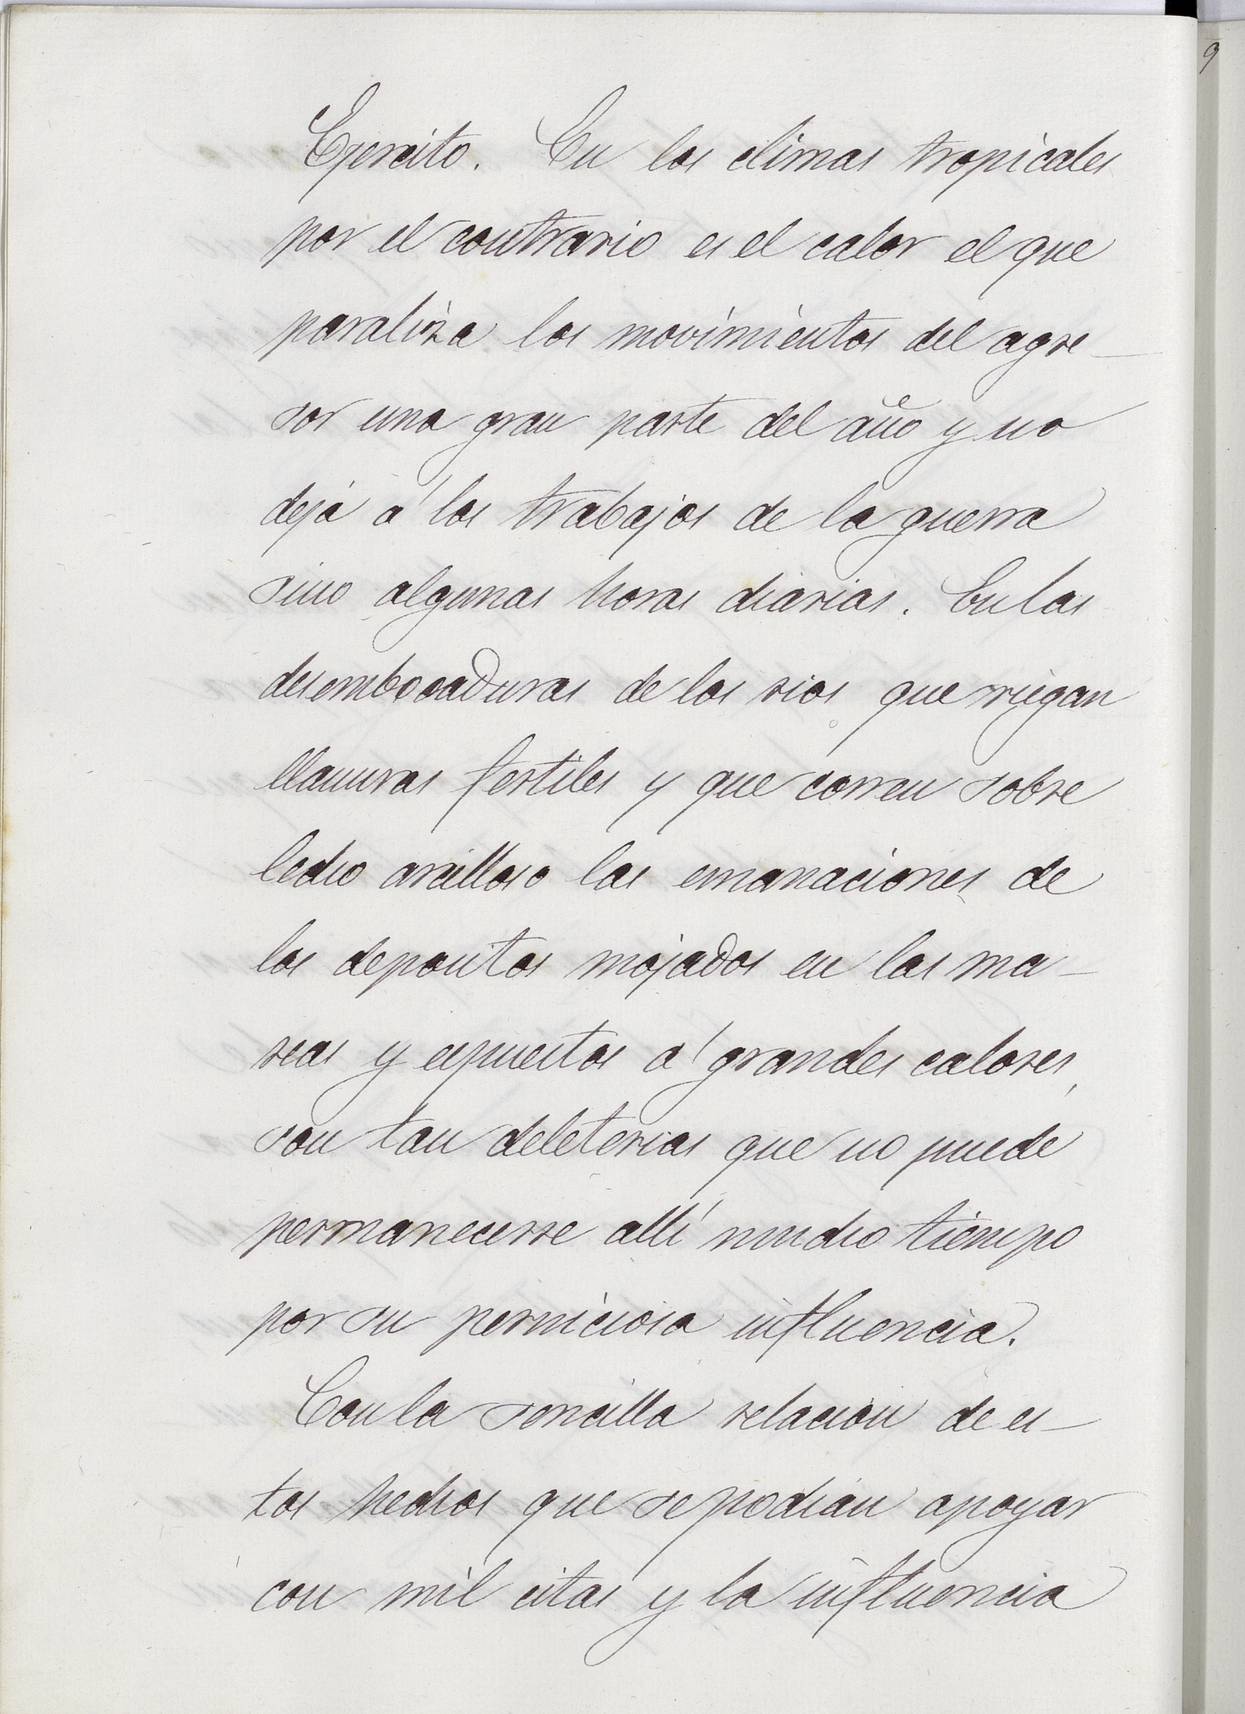 Ejercito. En los climas tropicales
por el contrario es el calor el que
paraliza los movimientos del agre-
sor una gran parte del año y no
deja á los trabajos de la guerra
sino algunas horas diarias. En las
desembocaduras de los rios que riegan
llanuras fertiles y que corren sobre
lecho arcilloso las emanaciones de
los depositos mojados en las ma-
reas y espuestos á grandes calores,
son tan deleterias que no puede
permanecerse allí mucho tiempo
por su perniciosa influencia.
Con la sencilla relacion de es-
tos hechos que se podian apoyar
con mil citas y la influencia
9